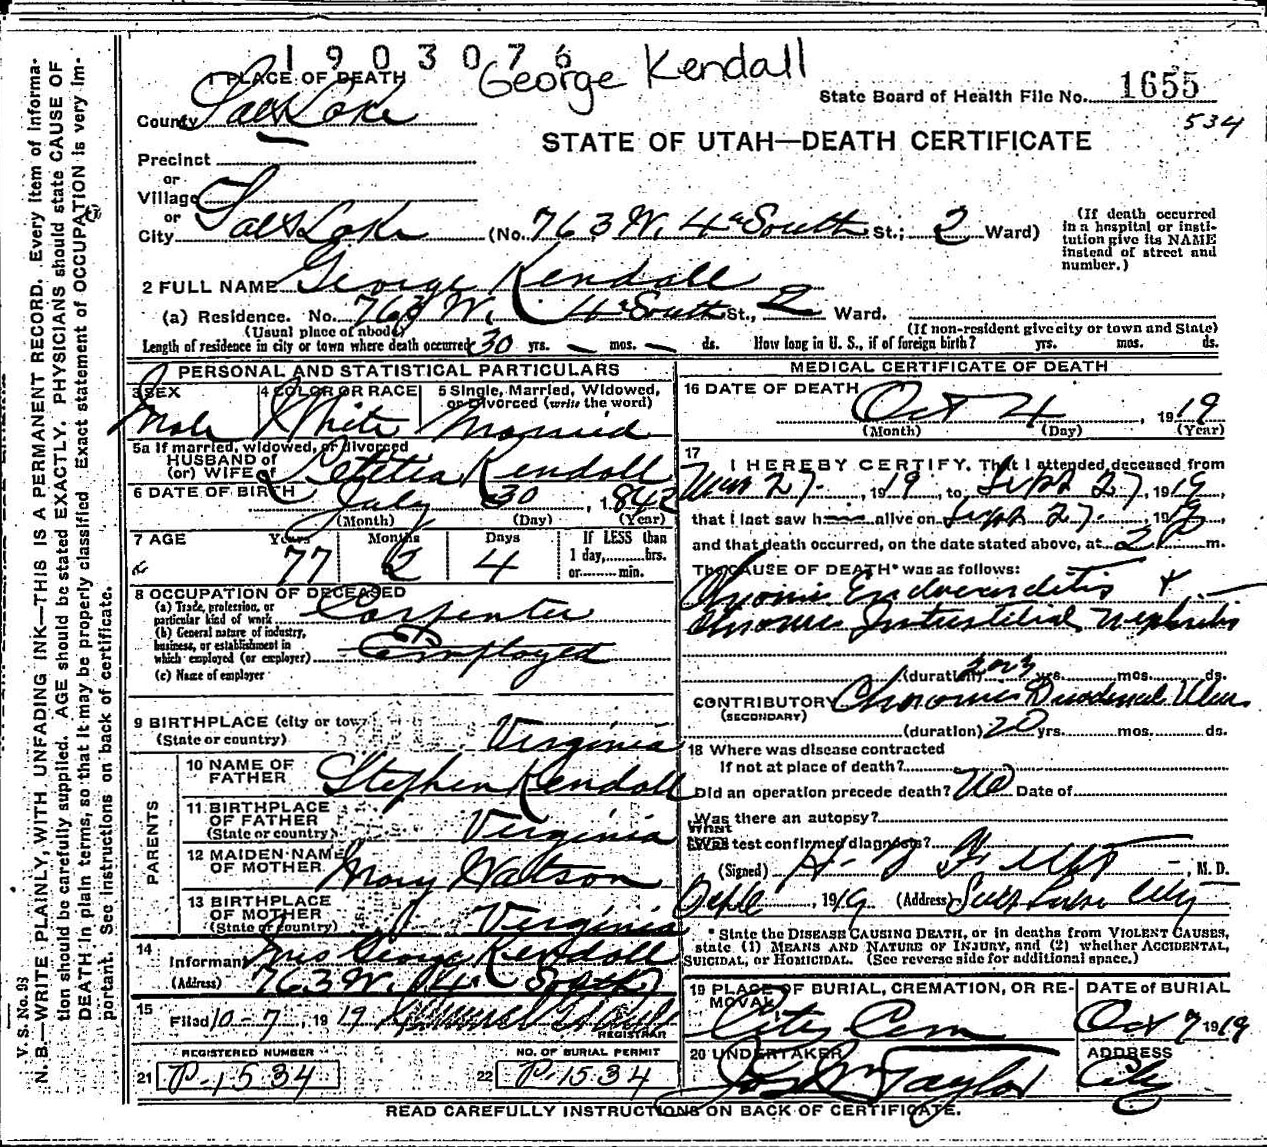 1903076
George Kendall
1 PLACE OF DEATH
State Board of Health File No. 1655
534
County Salt Lake
STATE OF UTAH—DEATH CERTIFICATE
Precinct
or
Village
or
City Salt Lake (No. 763 W. 4th South St.; 2 Ward)
(If death occurred in a hospital or insti-
tution give its NAME
instead of street and
number.)
2 FULL NAME George Kendall
(a) Residence. No. 763 W. 4th South St., 2 Ward.
(Usual place of abode) (If non-resident give city or town and State)
Length of residence in city or town where death occurred 30 yrs. — mos. — ds. How long in U. S., if of foreign birth? yrs. mos. ds.
PERSONAL AND STATISTICAL PARTICULARS
3 SEX Male
4 COLOR OR RACE White
5 Single, Married, Widowed, or Divorced (write the word) Married
5a If married, widowed, or divorced
HUSBAND of
(or) WIFE of Letitia Kendall
6 DATE OF BIRTH July 30, 1842
(Month) (Day) (Year)
7 AGE Years 77 Months 2 Days 4 If LESS than 1 day, hrs. or min.
8 OCCUPATION OF DECEASED
(a) Trade, profession, or
particular kind of work Carpenter
(b) General nature of industry,
business, or establishment in
which employed (or employer) Employed
(c) Name of employer
9 BIRTHPLACE (city or town)
(State or country) Virginia
PARENTS
10 NAME OF FATHER Stephen Kendall
11 BIRTHPLACE OF FATHER (State or country) Virginia
12 MAIDEN NAME OF MOTHER Mary Watson
13 BIRTHPLACE OF MOTHER (State or country) Virginia
14 Informant Mrs George Kendall
(Address) 763 W. 4 South
15 Filed 10-7, 1919
REGISTRAR
REGISTERED NUMBER
21 P-1534
NO. OF BURIAL PERMIT
22 P-1534
MEDICAL CERTIFICATE OF DEATH
16 DATE OF DEATH Oct 4, 1919
(Month) (Day) (Year)
17 I HEREBY CERTIFY, That I attended deceased from
27, 1919, to Sept 27, 1919,
that I last saw h alive on Sept 27, 1919,
and that death occurred, on the date stated above, at 2 P m.
The CAUSE OF DEATH* was as follows:
Chronic Endocarditis +
Chronic Interstitial Nephritis
(duration) yrs. mos. ds.
CONTRIBUTORY Chronic Duodenal Ulcer
(SECONDARY)
(duration) 20 yrs. mos. ds.
18 Where was disease contracted
If not at place of death?
Did an operation precede death? No Date of
Was there an autopsy?
What test confirmed diagnosis?
(Signed) , M. D.
, 1919 (Address) Salt Lake City
* State the DISEASE CAUSING DEATH, or in deaths from VIOLENT CAUSES,
state (1) MEANS AND NATURE OF INJURY, and (2) whether ACCIDENTAL,
SUICIDAL, or HOMICIDAL. (See reverse side for additional space.)
19 PLACE OF BURIAL, CREMATION, OR RE-
MOVAL City Cem
DATE of BURIAL Oct 7 1919
20 UNDERTAKER Jos Wm Taylor
ADDRESS City
READ CAREFULLY INSTRUCTIONS ON BACK OF CERTIFICATE.
V. S. No. 93
N. B.—WRITE PLAINLY, WITH UNFADING INK—THIS IS A PERMANENT RECORD. Every item of informa-
tion should be carefully supplied. AGE should be stated EXACTLY. PHYSICIANS should state CAUSE OF
DEATH in plain terms, so that it may be properly classified. Exact statement of OCCUPATION is very im-
portant. See instructions on back of certificate.